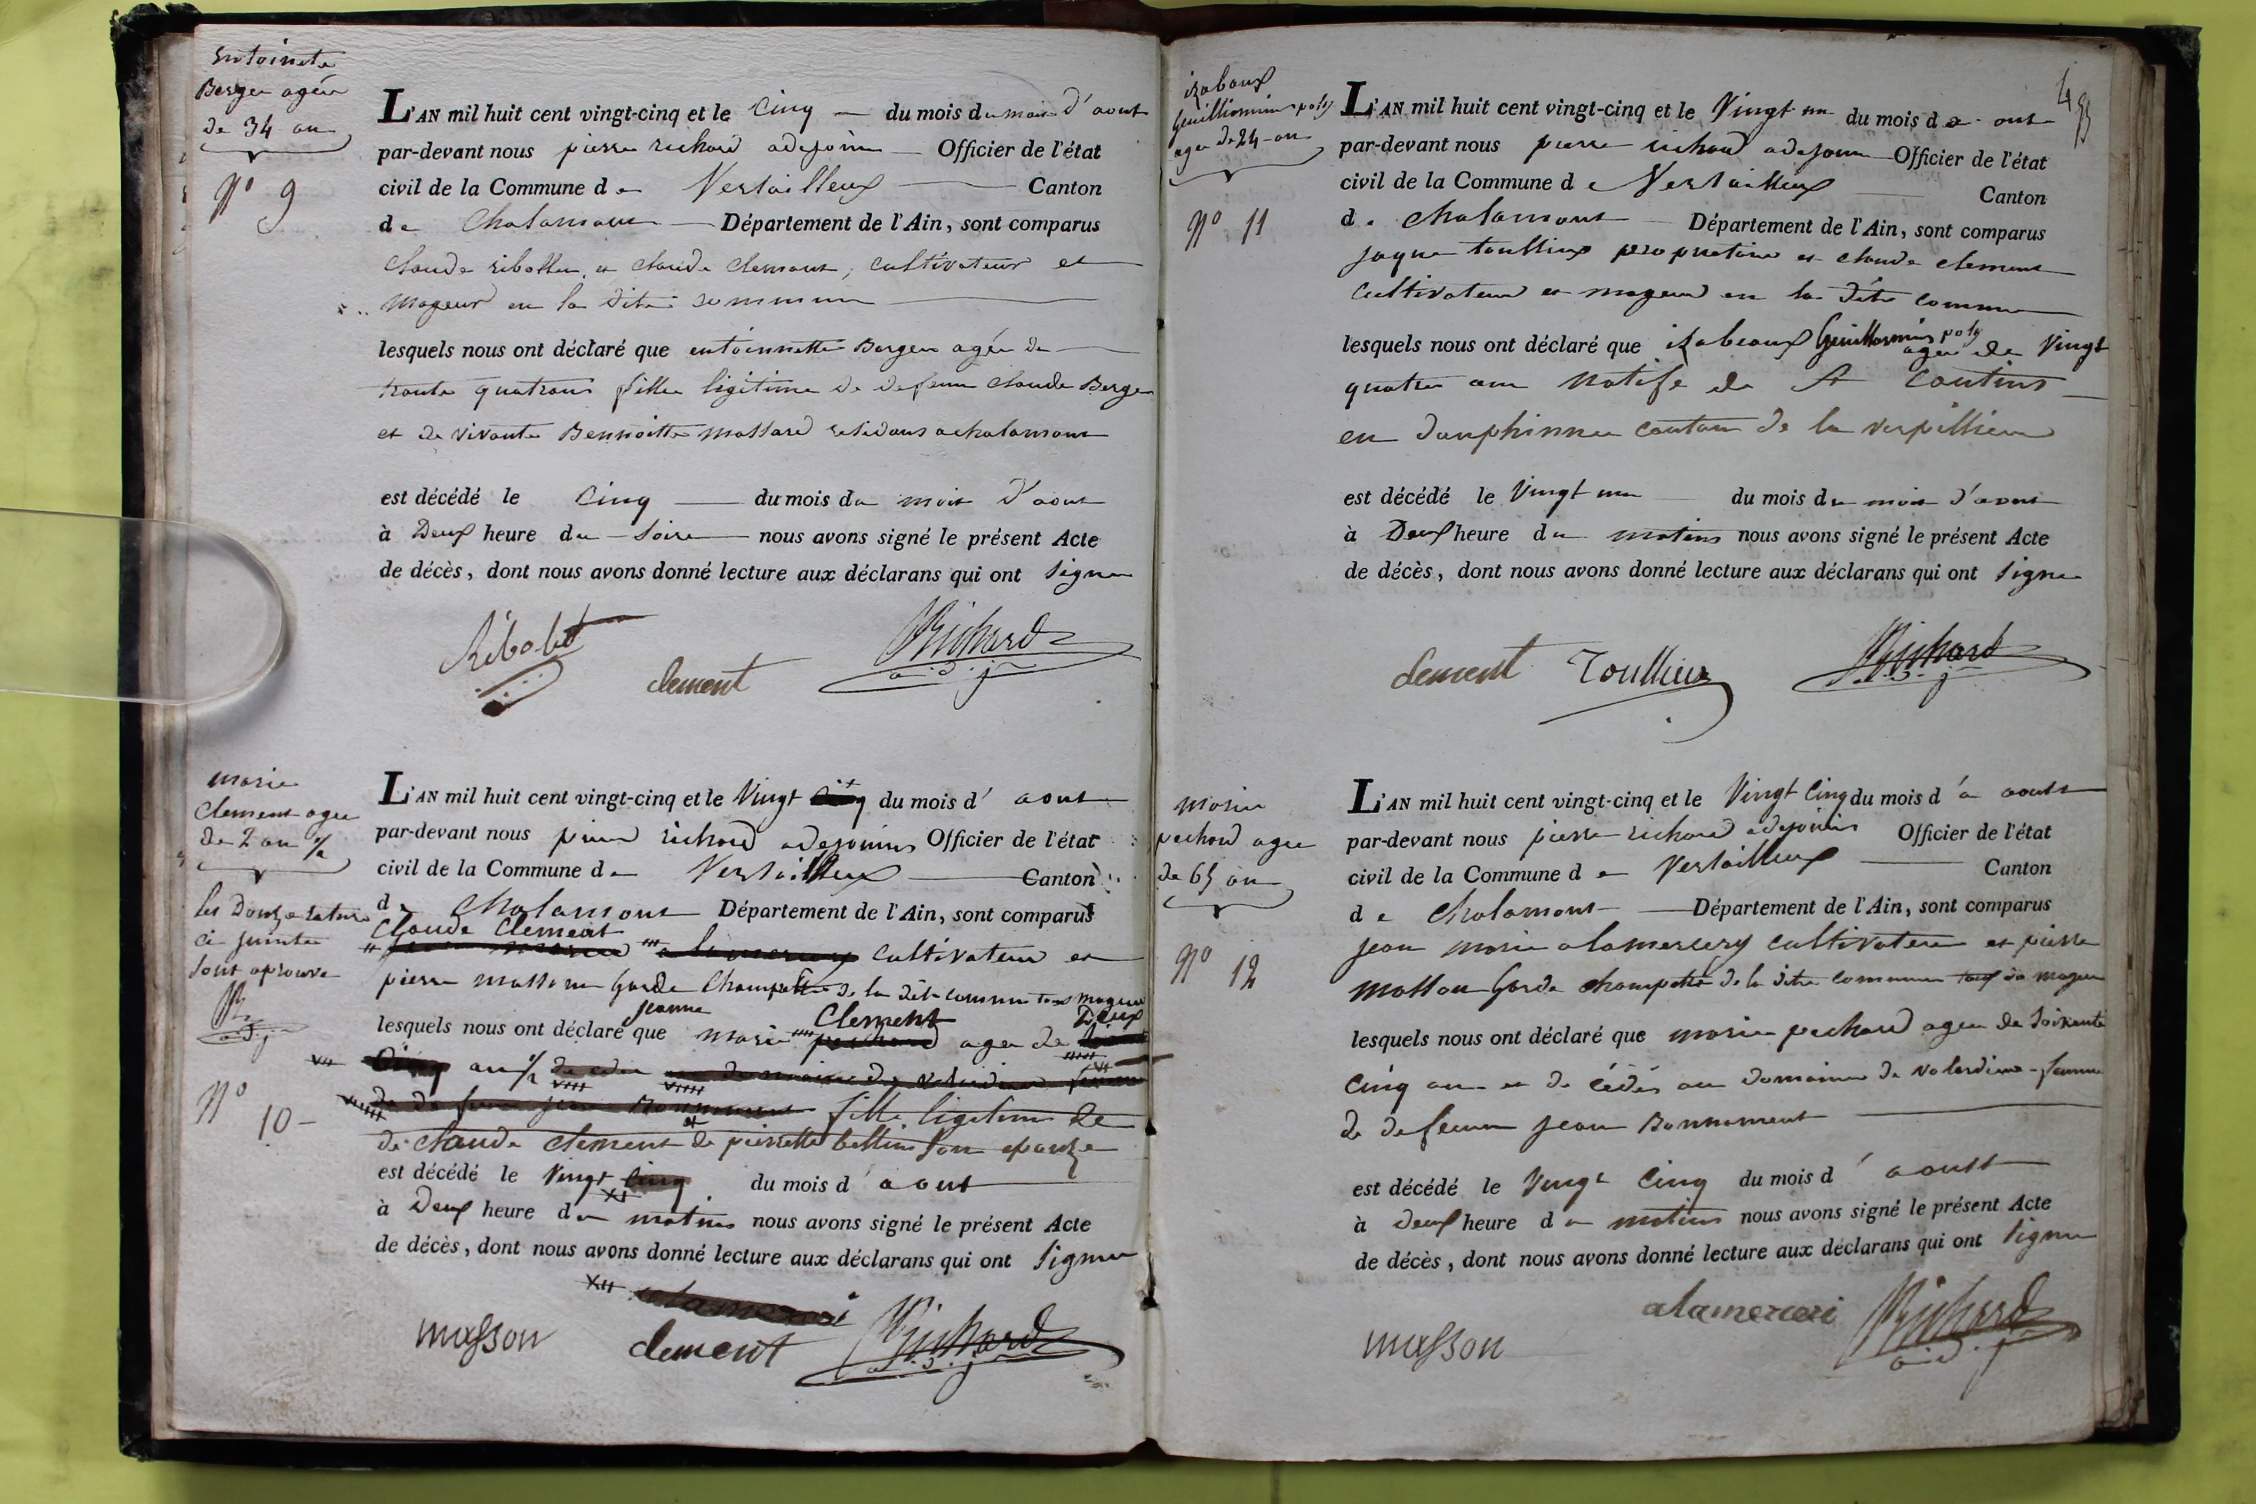 Entoinete
Berger agée
de 34 an
N° 9
L'AN mil huit cent vingt-cinq et le Cinq du mois du mois d'aout
par-devant nous pierre richard adejoin Officier de l'état
civil de la Commune de Versailleux Canton
de Chalamont Département de l'Ain, sont comparus
Claude ribollet et claude clement, cultivateur et
mageur en la dite commune
lesquels nous ont déclaré que entoinnette Berger agée de
trante quatrans fille ligitime de defeun claude Berger
et de vivante Bennoitte massard residans a chalamont
est décédé le Cinq du mois du mois d'aout
à Deux heure du soire nous avons signé le présent Acte
de décès, dont nous avons donné lecture aux déclarans qui ont signe
Ribolet
clement
PRichard
adj
marie
Clement agee
de 2 an ½
les Douze rature
ci jointe
sont aprouve
PR
adj
N° 10
L'AN mil huit cent vingt-cinq et le Vingt cinq du mois d' aout
par-devant nous pierre richard adejoins Officier de l'état
civil de la Commune de Versailleux Canton
de Chalamont Département de l'Ain, sont comparus
Claude Clement
cultivateur et
pierre masson Garde Champettre de la dite commune tous mageur
jeanne Clement Deux
lesquels nous ont déclaré que marie agee de
Cinq an ½ de cedee
fille ligitime de
de claude clement et de pierrette bellin son epouze
est décédé le vingt cinq du mois d'aout
à Deux heure du matins nous avons signé le présent Acte
de décès, dont nous avons donné lecture aux déclarans qui ont signe
alamerceri
masson
clement
PRichard
adj
izabaux
Guilliomin poly
agee de 24 an
N° 11
45
L'AN mil huit cent vingt-cinq et le Vingt un du mois de out
par-devant nous pierre richard adejoin Officier de l'état
civil de la Commune de Versailleux Canton
de chalamont Département de l'Ain, sont comparus
jaque toullieux propriétaire et claude clement
cultivateur et mageur en la dite commune
lesquels nous ont déclaré que izabeaux Guilliomin poly agee de Vingt
quatre an natife de St Coutins
en dauphinnee canton de la verpilliere
est décédé le Vingt un du mois du mois d'aout
à Deux heure du matins nous avons signé le présent Acte
de décès, dont nous avons donné lecture aux déclarans qui ont signe
clement
Toullieux
PRichard
adj
marie
pechard agee
de 65 an
N° 12
L'AN mil huit cent vingt-cinq et le Vingt Cinq du mois d'a aoust
par-devant nous pierre richard adejoins Officier de l'état
civil de la Commune de Versailleux Canton
de Chalamont Département de l'Ain, sont comparus
jean marie alamercery cultivateur et pierre
masson Garde champettre de la dite commune tous da mageur
lesquels nous ont déclaré que marie pechard agee de soixante
cinq an et de cédés au domaine de valerdieux femme
de defeun jean Bonnament
est décédé le vingt Cinq du mois d' aoust
à deux heure du matins nous avons signé le présent Acte
de décès, dont nous avons donné lecture aux déclarans qui ont signe
alamerceri
masson
PRichard
adj